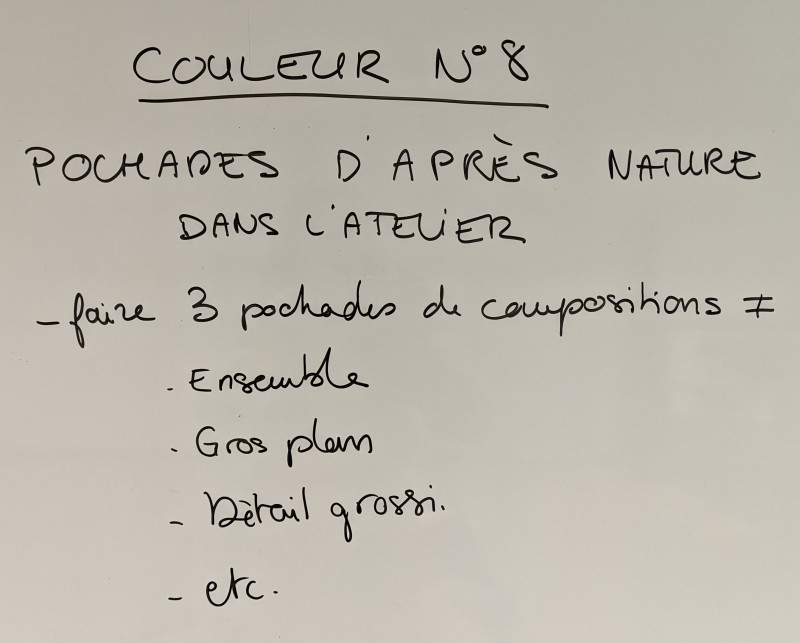 COULEUR N°8
POCHADES D'APRÈS NATURE
DANS L'ATELIER
- faire 3 pochades de compositions ≠
. Ensemble
. Gros plan
- Détail grossi.
- etc.